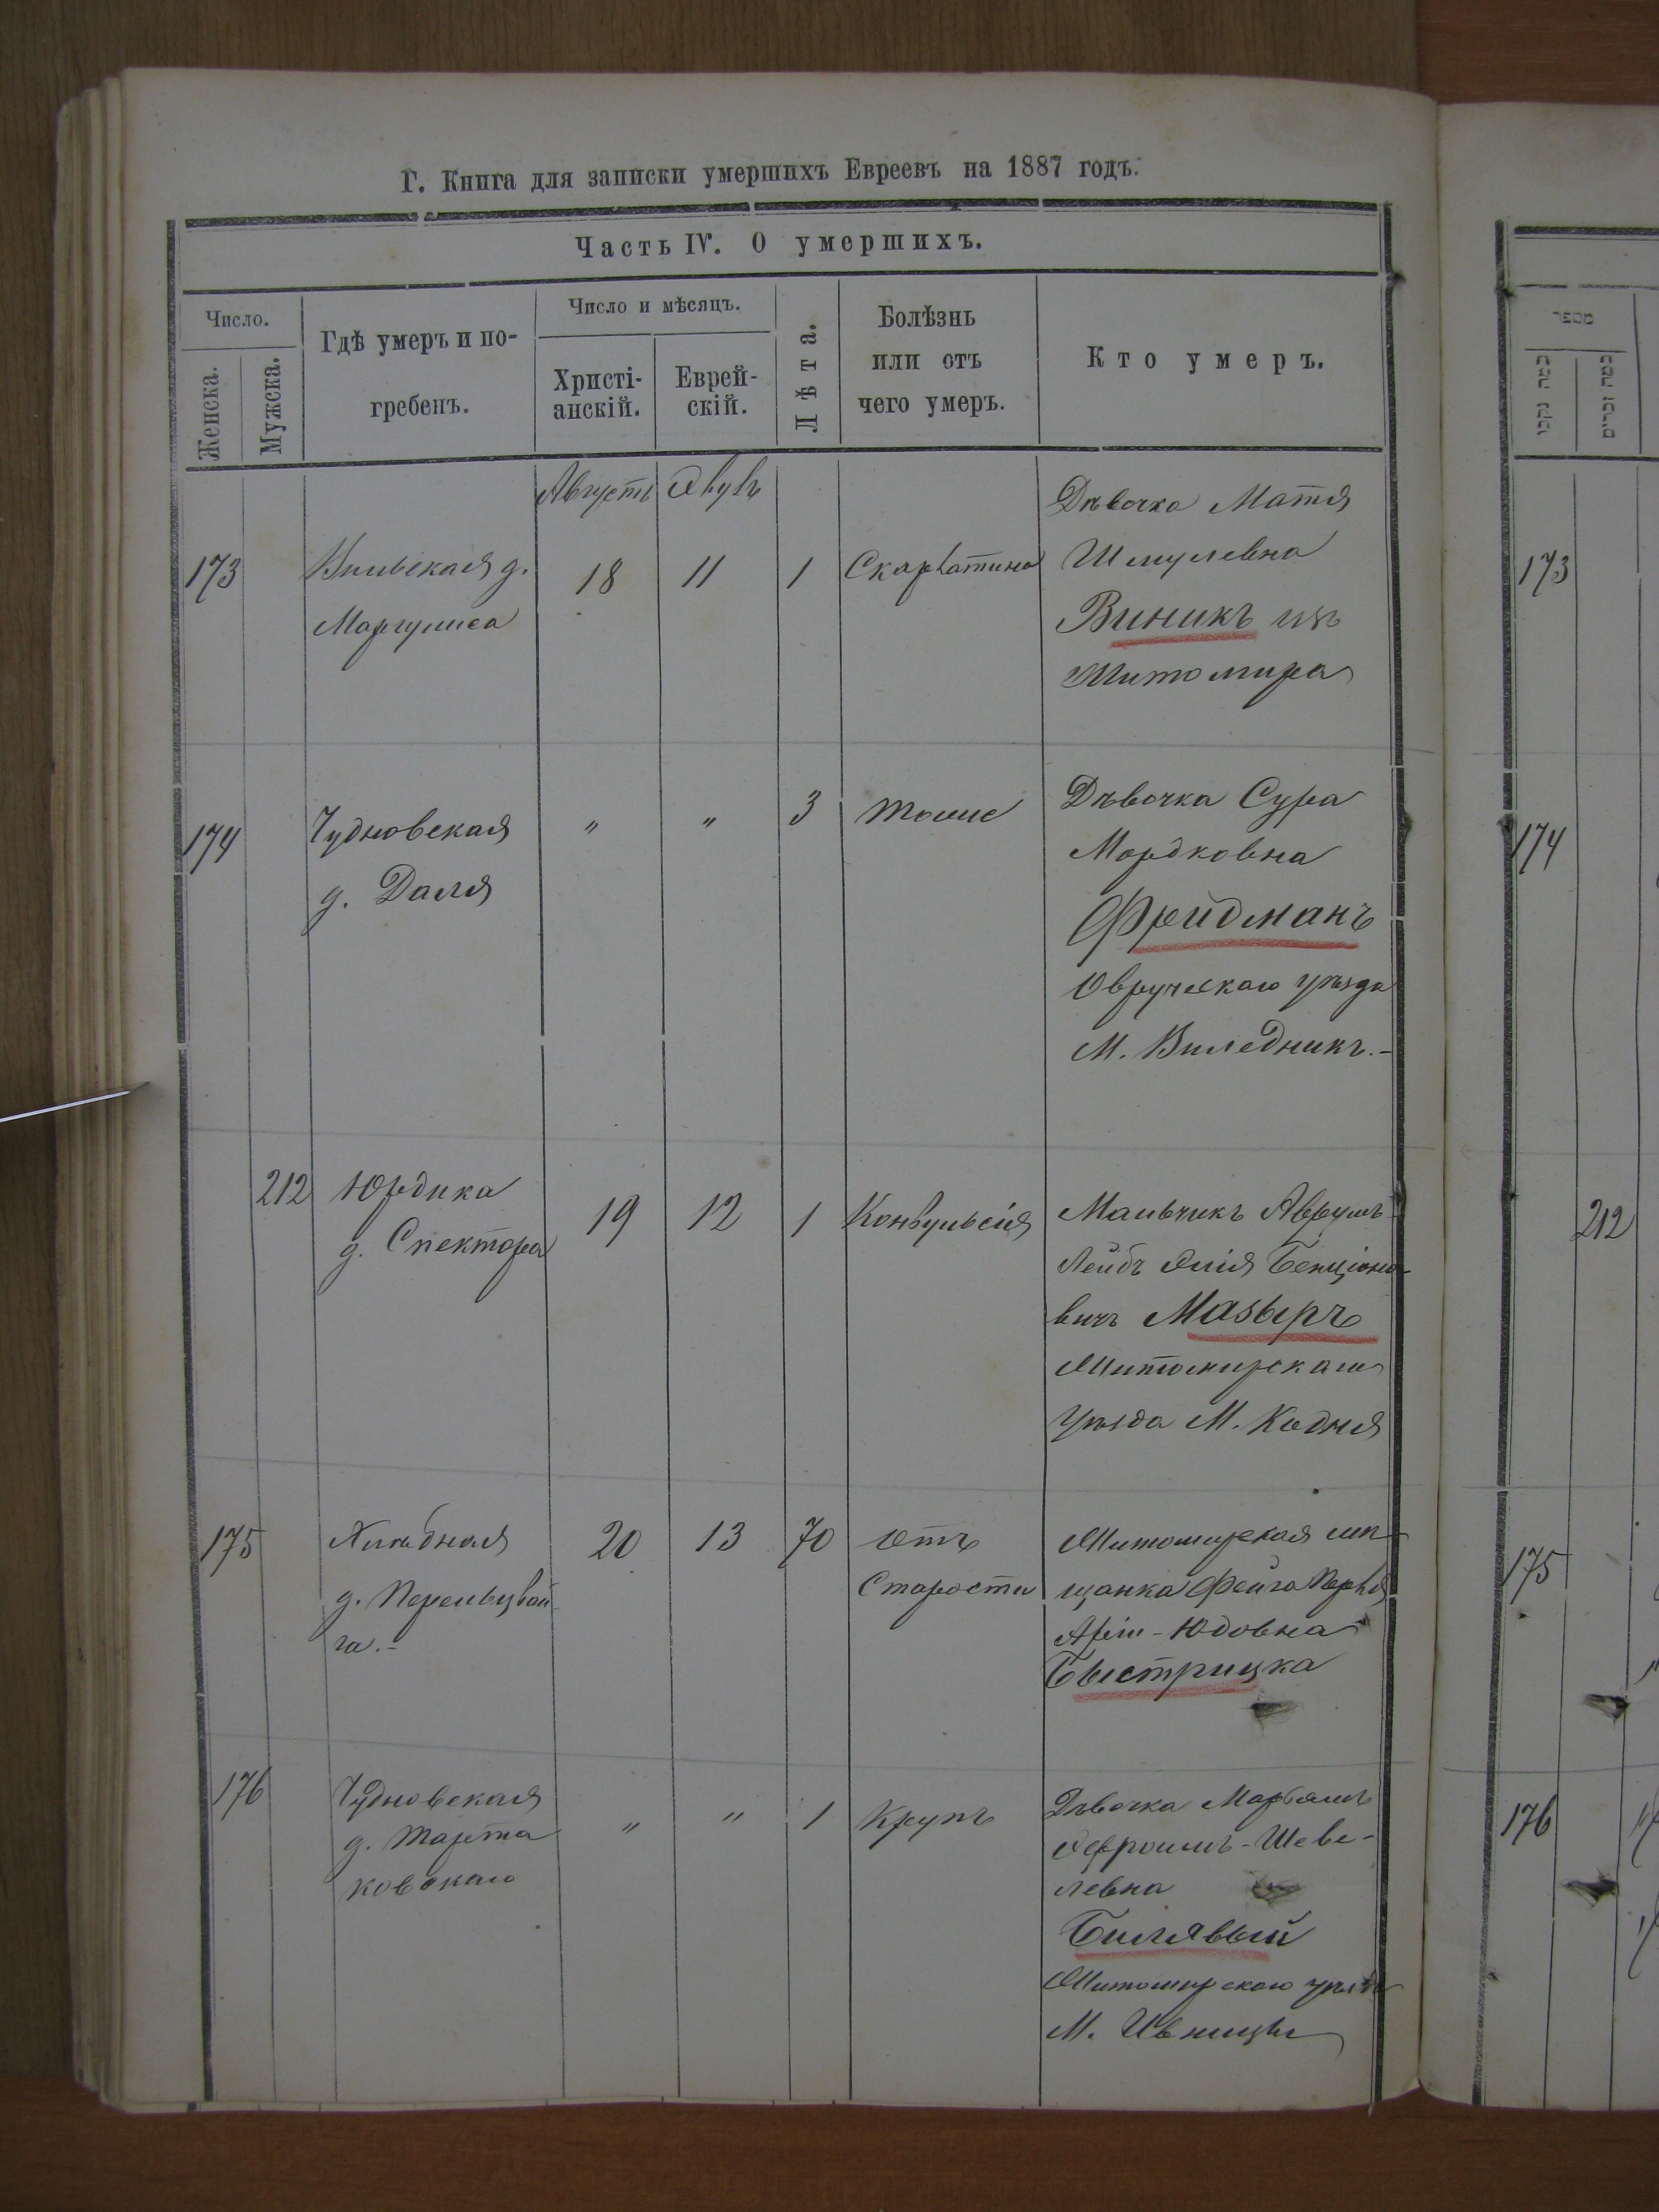 Г. Книга для записки умершихъ Евреевъ на 1887 годъ.
Часть IV. О умершихъ.
Число.
Женска.
Мужска.
Гдѣ умеръ и по-
гребенъ.
Число и мѣсяцъ.
Христі-
анскій.
Еврей-
скій.
Лѣта.
Болѣзнь
или отъ
чего умеръ.
Кто умеръ.
Августъ
173
Вильская д.
Маргулиса
18
11
1
Скарлатина
ДѣвочкаМатля
Шмулевна
Виникъ изъ
Житомира
174
Чудновская
д. Даля
"
"
3
Тоже
Дѣвочка Сура
Мордковна
Фрейдманъ
Овручскаго уѣзда
М. Виледникъ.-
212
Юрдика
д. Спектора
19
12
1
Конвульсія
Мальчикъ Аврумъ-
Лейбъ Элія Бенціоно-
вичъ Мазыръ
Житомирскаго
уѣзда М. Кодня
175
Хлѣбная
д. Перельцвай-
га.-
20
13
70
Отъ
Старости
Житомирская мѣ-
щанка Фейга Перля
Арій-Юдовна
Быстрицка
176
Чудновская
д. Тарта
ковскаго
"
"
1
Крупъ
Дѣвочка Марьямъ
Эфроимъ-Шеве-
левна
Билявый
Житомирскаго уѣзда
М. Ивницы
מספר
173
174
212
175
176